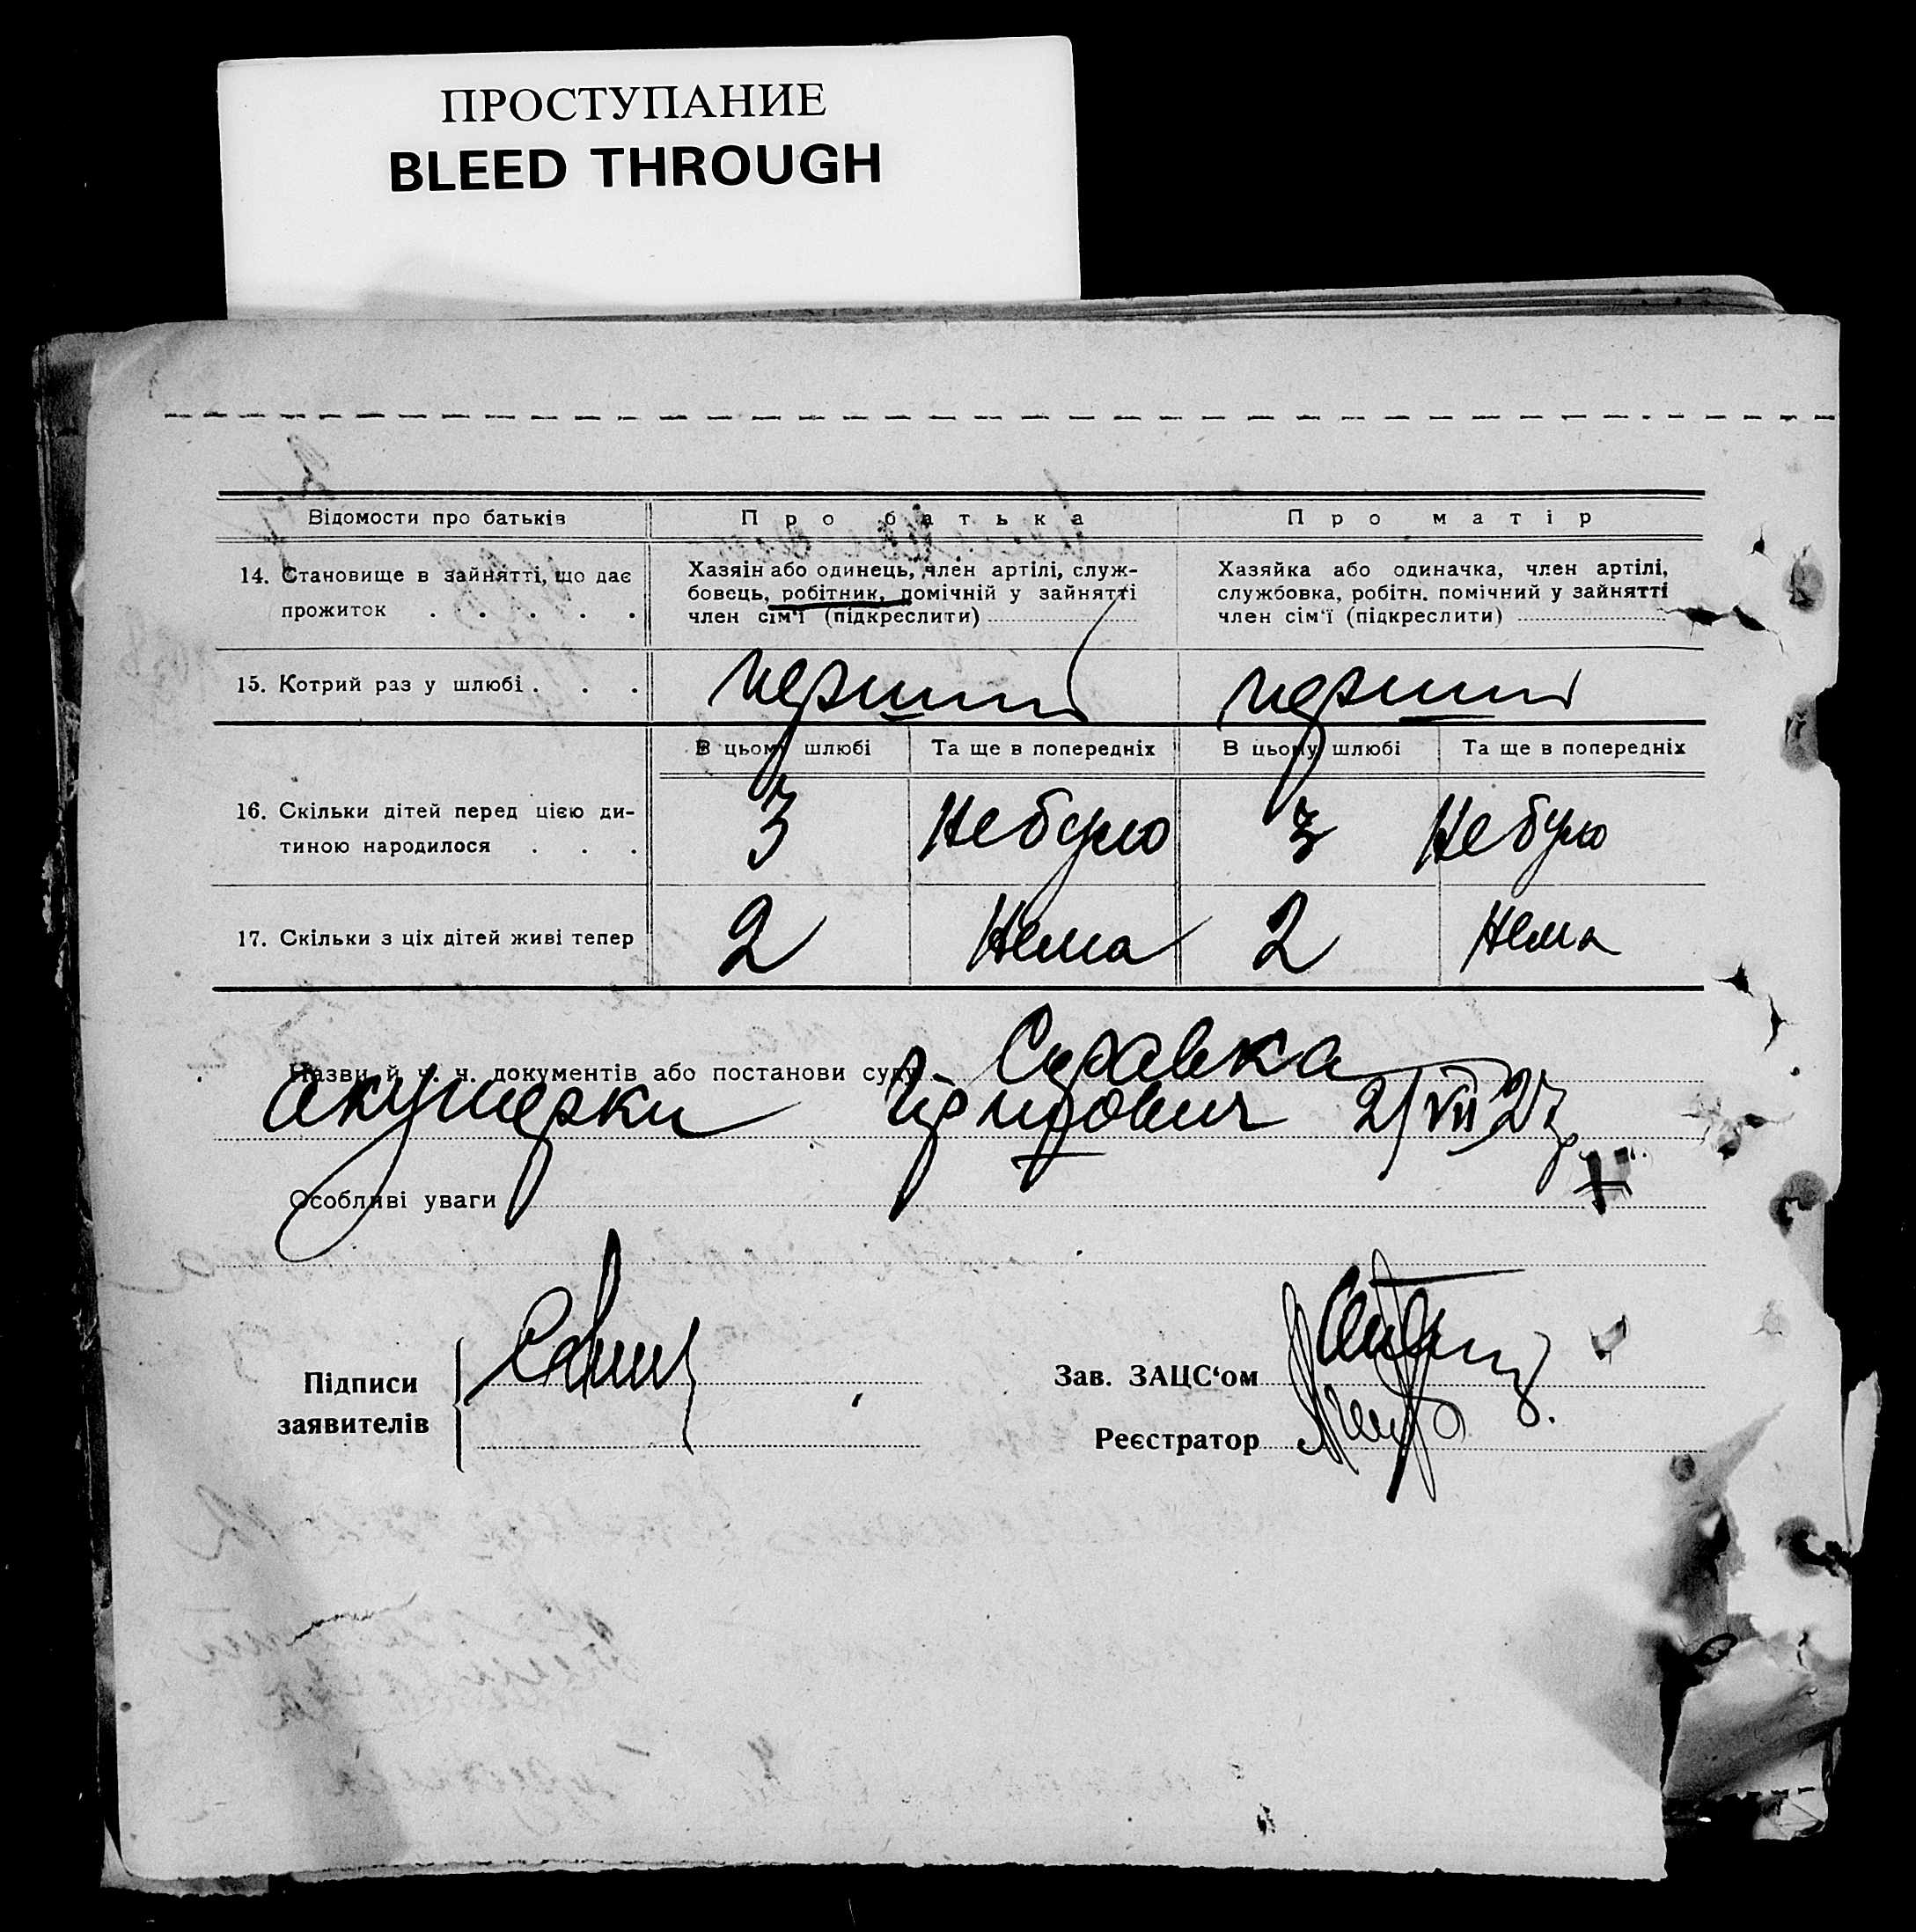 ПРОСТУПАНИЕ
BLEED THROUGH
Відомости про батьків
Про батька
Про матір
14. Становище в зайнятті, що дає
прожиток . . . . .
Хазяін або одинець, член артілі, служ-
бовець, робітник, помічній у зайнятті
член сім'ї (підкреслити)
Хазяйка або одиначка, член артілі,
службовка, робітн. помічний у зайнятті
член сім'ї (підкреслити)
15. Котрий раз у шлюбі . . .
перший
перший
В цьому шлюбі
Та ще в попередніх
В цьому шлюбі
Та ще в попередніх
16. Скільки дітей перед цією ди-
тиною народилося . . .
3
Небуло
3
Небуло
17. Скільки з ціх дітей живі тепер
2
Нема
2
Нема
Назви й ч. ч. документів або постанови суду Справка
акушерки 2/VII 27
Особливі уваги
Підписи
заявителів
Зав. ЗАЦС'ом
Реєстратор